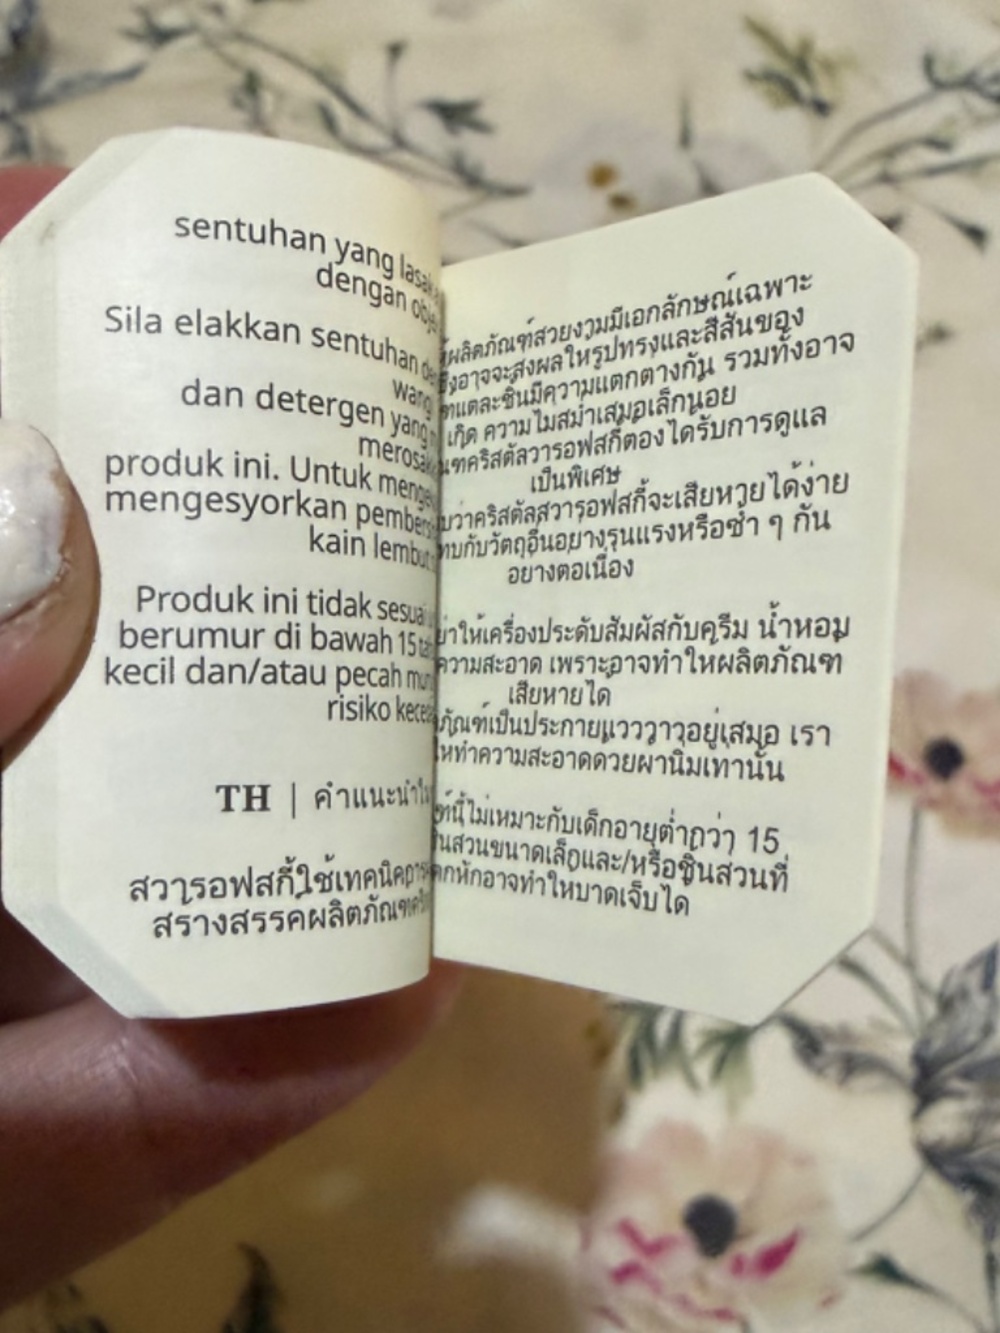 sentuhan yang
dengan
Sila elakkan sentuhan
dan detergen yang
produk ini. Untuk
mengesyorkan
kain lembut
Produk ini tidak
berumur di bawah 15
kecil dan/atau pecah
risiko
TH | คำแนะนำ
สวารอฟสกี้ใช้เทคนิค
สร้างสรรค์ผลิตภัณฑ์
ผลิตภัณฑ์สวยงามมีเอกลักษณ์เฉพาะ
ซึ่งอาจจะส่งผลให้รูปทรงและสีสันของ
แต่ละชิ้นมีความแตกต่างกัน รวมทั้งอาจ
เกิด ความไม่สม่ำเสมอเล็กน้อย
คริสตัลสวารอฟสกี้ต้องได้รับการดูแล
เป็นพิเศษ
ว่าคริสตัลสวารอฟสกี้จะเสียหายได้ง่าย
กับวัตถุอื่นอย่างรุนแรงหรือซ้ำ ๆ กัน
อย่างต่อเนื่อง
ให้เครื่องประดับสัมผัสกับครีม น้ำหอม
ความสะอาด เพราะอาจทำให้ผลิตภัณฑ์
เสียหายได้
เป็นประกายแวววาวอยู่เสมอ เรา
ให้ทำความสะอาดด้วยผ้านิ่มเท่านั้น
นี้ไม่เหมาะกับเด็กอายุต่ำกว่า 15
ขนาดเล็กและ/หรือชิ้นส่วนที่
หักอาจทำให้บาดเจ็บได้